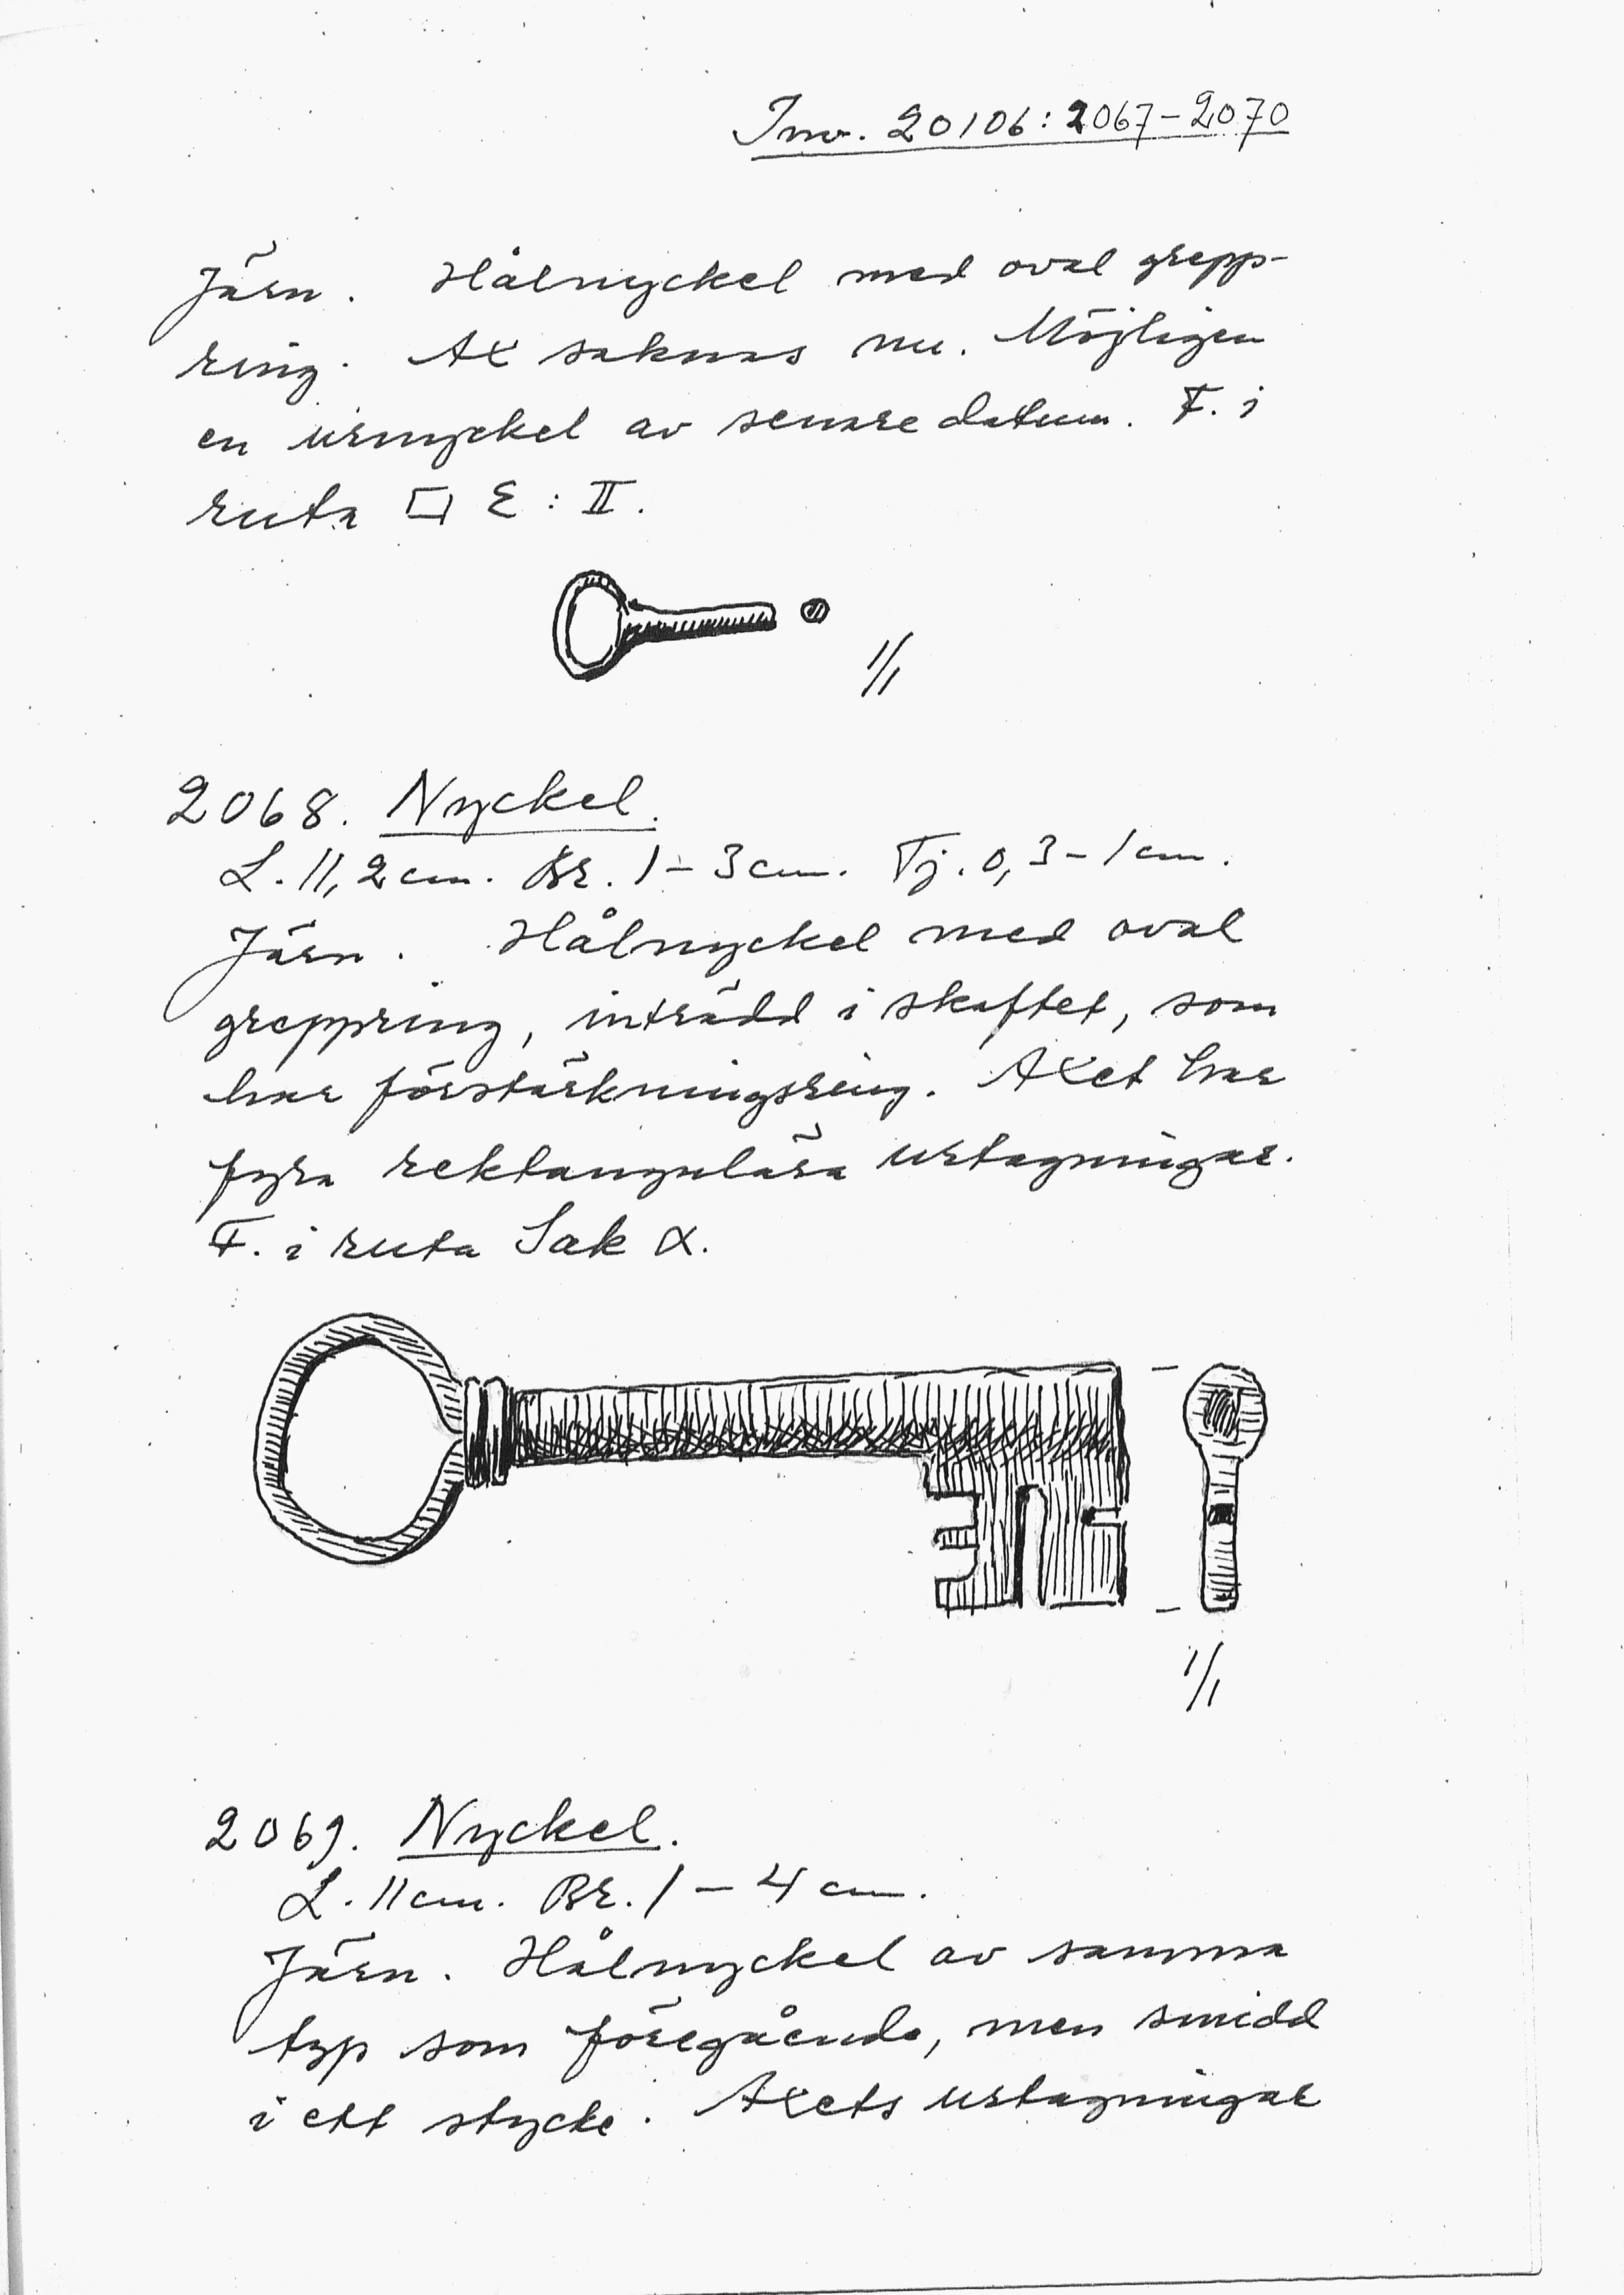 Inv. 20106:2067-2070
Järn. Hålnyckel med oval grepp-
ring. Ax saknas nu. Möjligen
en urnyckel av senare datum. F. i
ruta □ E : II.
1/1
2068. Nyckel.
L. 11,2 cm. Br. 1-3 cm. Tj. 0,3-1 cm.
Järn. Hålnyckel med oval
greppring, inträdd i skaftet, som
har förstärkningsring. Axet har
fyra rektangulära urtagningar.
F. i ruta Sak α.
1/1
2069. Nyckel.
L. 11 cm. Br. 1-4 cm.
Järn. Hålnyckel av samma
typ som föregående, men smidd
i ett stycke. Axets urtagningar